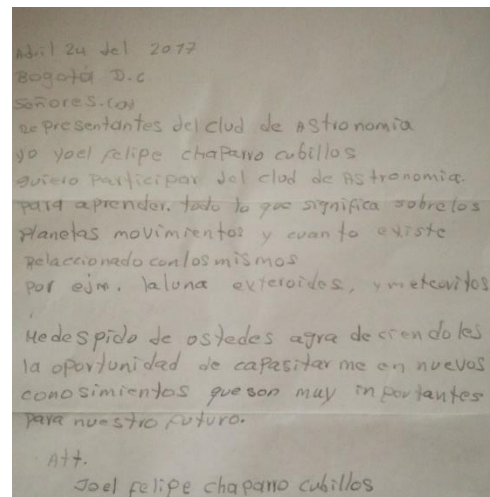 Abril 24 del 2017
Bogotá D.C.
Señores.(as)
Representantes del clud de Astronomia
yo yoel felipe chaparro cubillos
quiero participar del clud de Astronomia.
para aprender. todo lo que significa sobre los
planetas movimientos y cuanto existe
Relaccionado con los mismos
por ejm. la luna exteroidos, y meteoritos
.
Me despido de ostedes agradeciendoles
la oportunidad de capasitarme en nuevos
conosimientos que son muy inportantes
para nuestro futuro.
Att.
Joel felipe chaparro cubillos